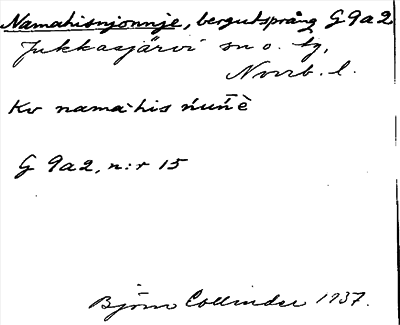 Namahisnjonnje, bergutsprång G 9a2
Jukkasjärvi sn o. tg,
Norrb. l.
Kv namahis ńuńńè
G 9a2, n:r 15
Björn Collinder 1937.